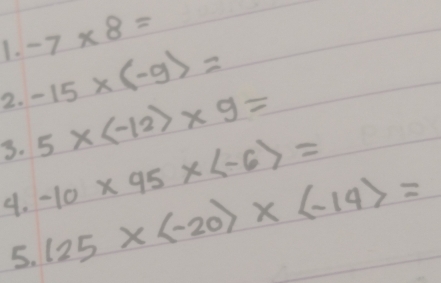 1. -7 × 8 =
2. -15 × (-9) =
3. 5 × (-12) × 9 =
4. -10 × 95 × (-6) =
5. 125 × (-20) × (-14) =